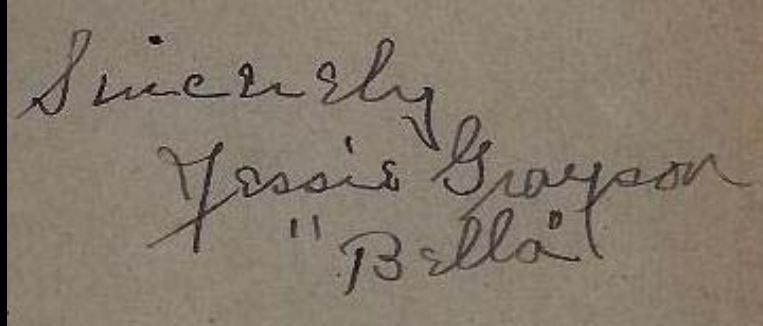 Sincerely
Jessie Grayson
"Bella"